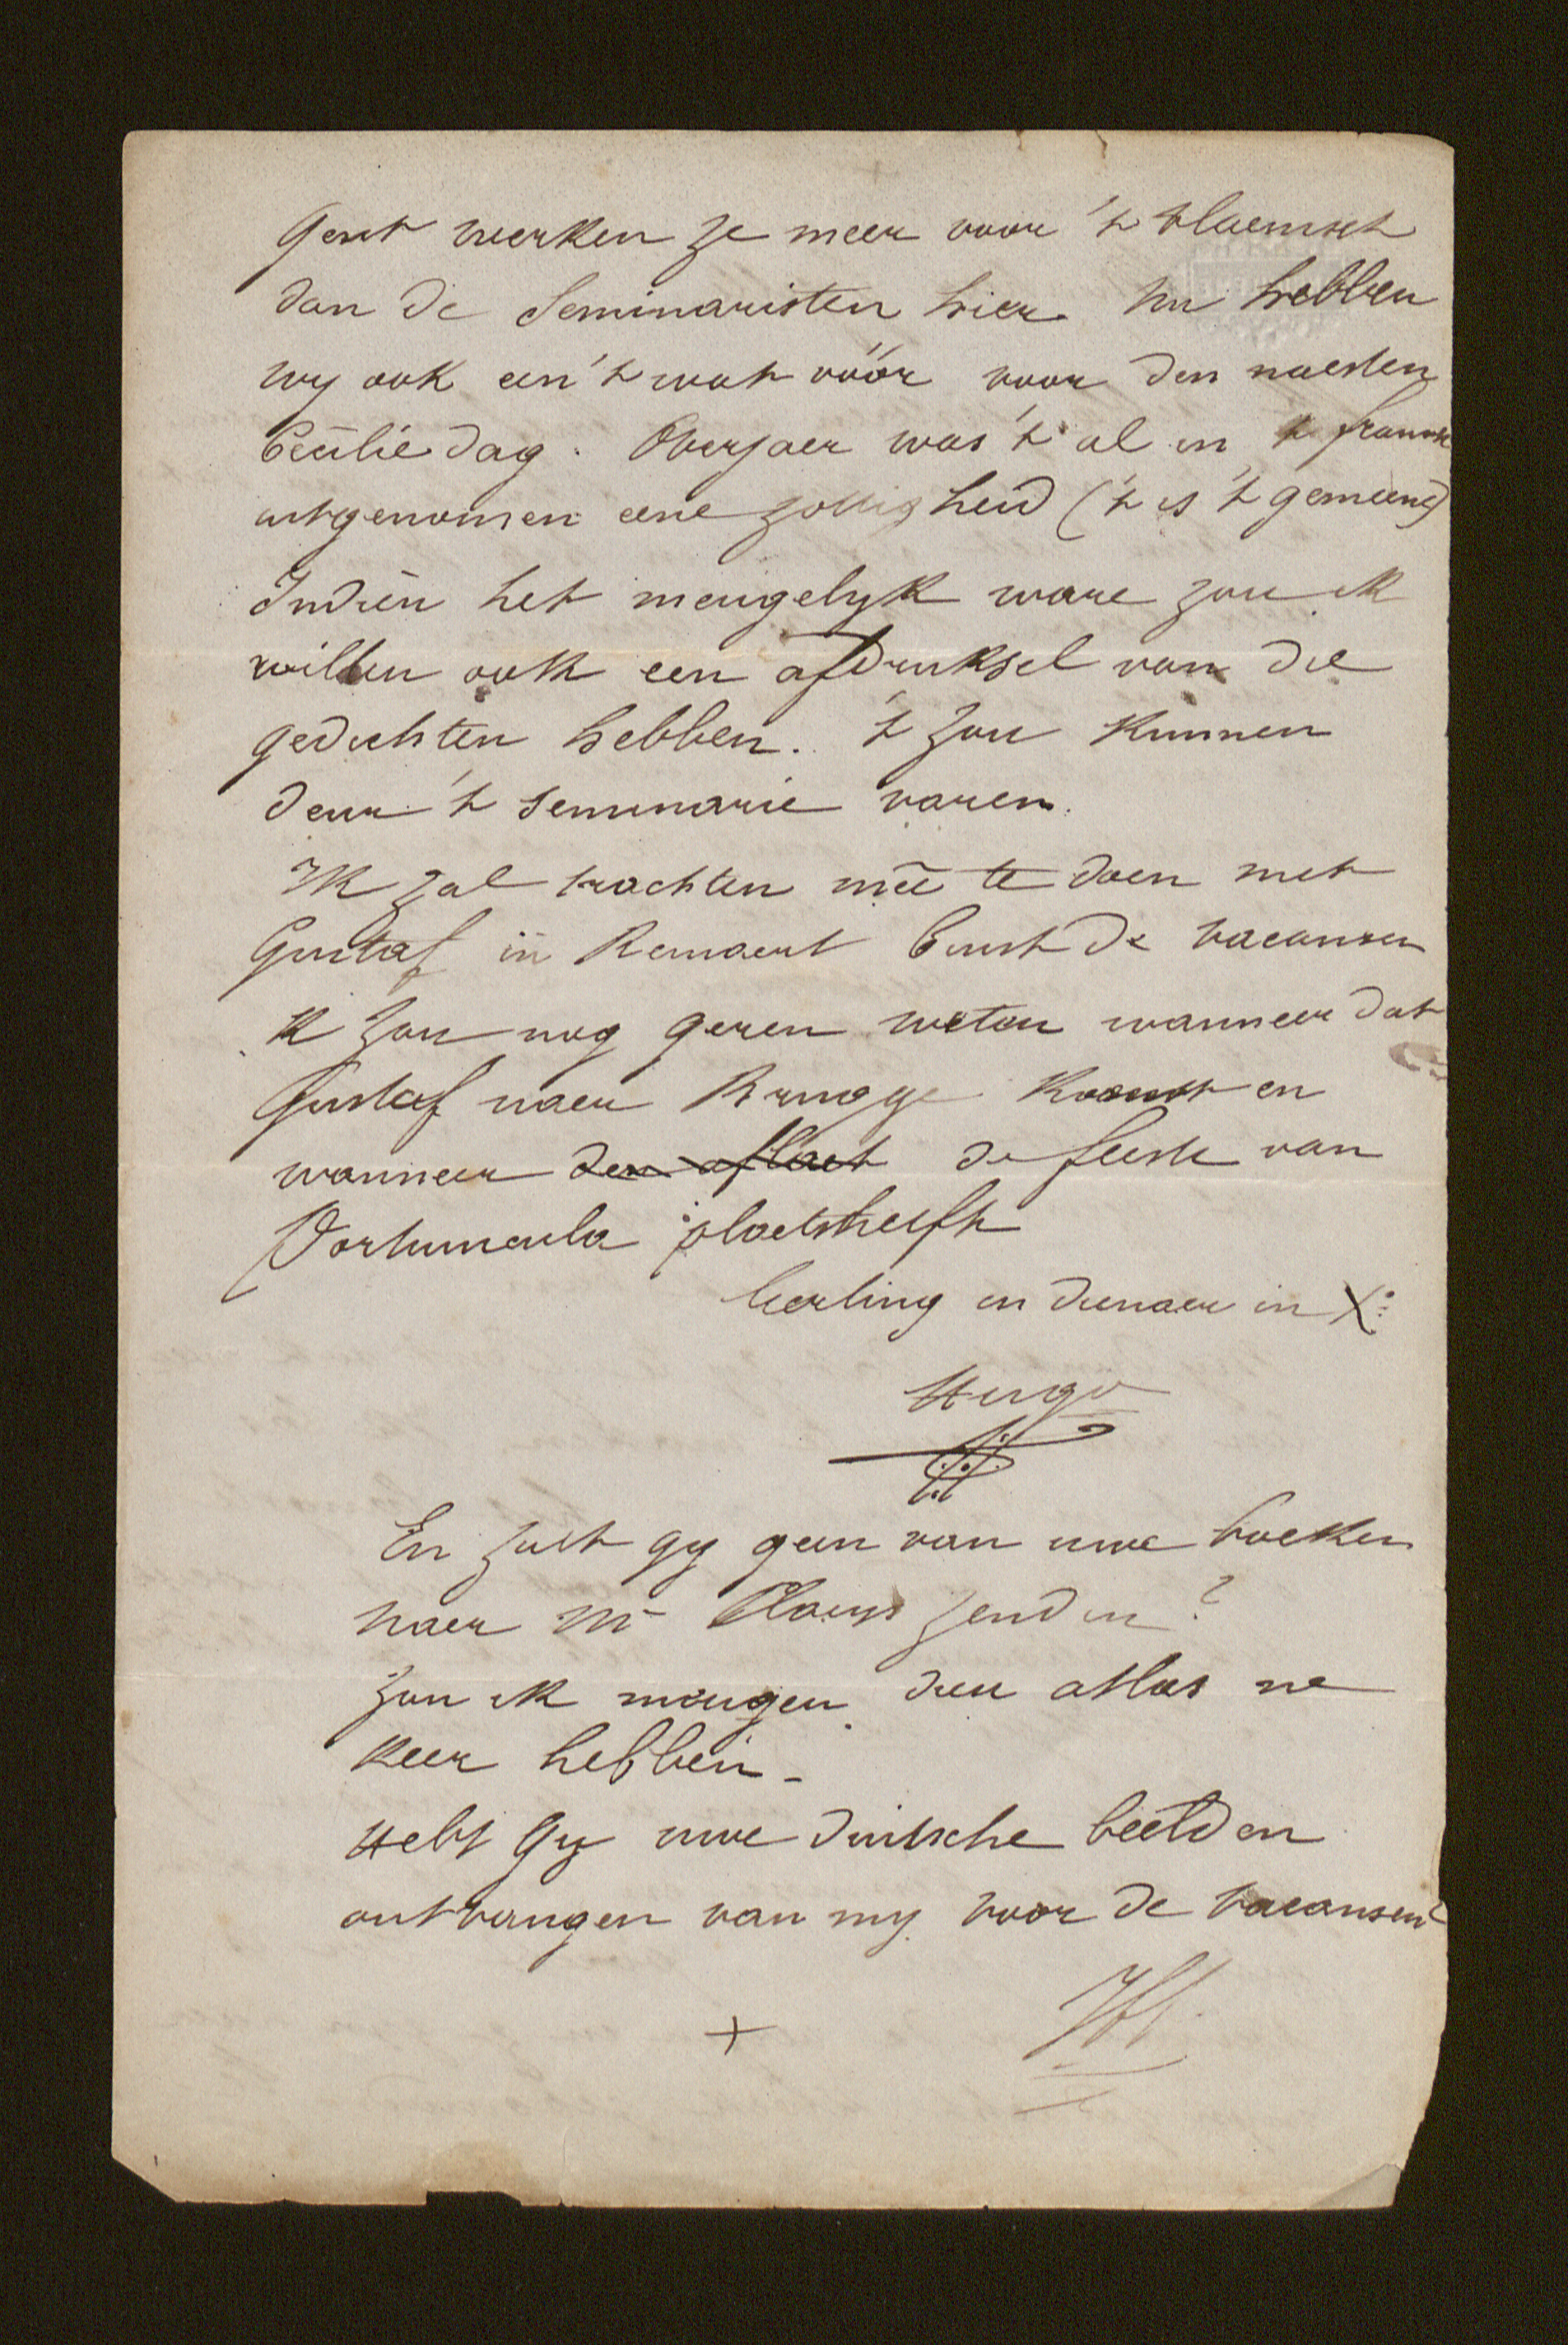 Gent werken ze meer voor 't vlaemsch
dan de Seminaristen hier. Nu hebben
wy ook een 't wat vóór voor den naesten
Ceciliedag. Overjaer was 't al in 't fransch
uitgenomen eene zottigheid ('t is 't gemeene)
Indien het meugelyk ware zou ik
willen ook een afdruksel van die
gedichten hebben. 't zou kunnen
deur 't seminarie varen.
Ik zal trachten meê te doen met
Gustaf in Remaert binst de vacansen
k zou nog geren weten wanneer dat
Gustaf naer Brugge komt en
wanneer den aflaet de feeste van
Portiuncula plaetsheeft
leerling en dienaer in X:
Hugo
En zult gy geen van uwe boeken
naer Mr Claeys zenden?
zou ik meugen dien atlas ne
keer hebben -
Hebt Gy uwe duitsche beelden
ontvangen van my voor de vacansen?
HV.
+